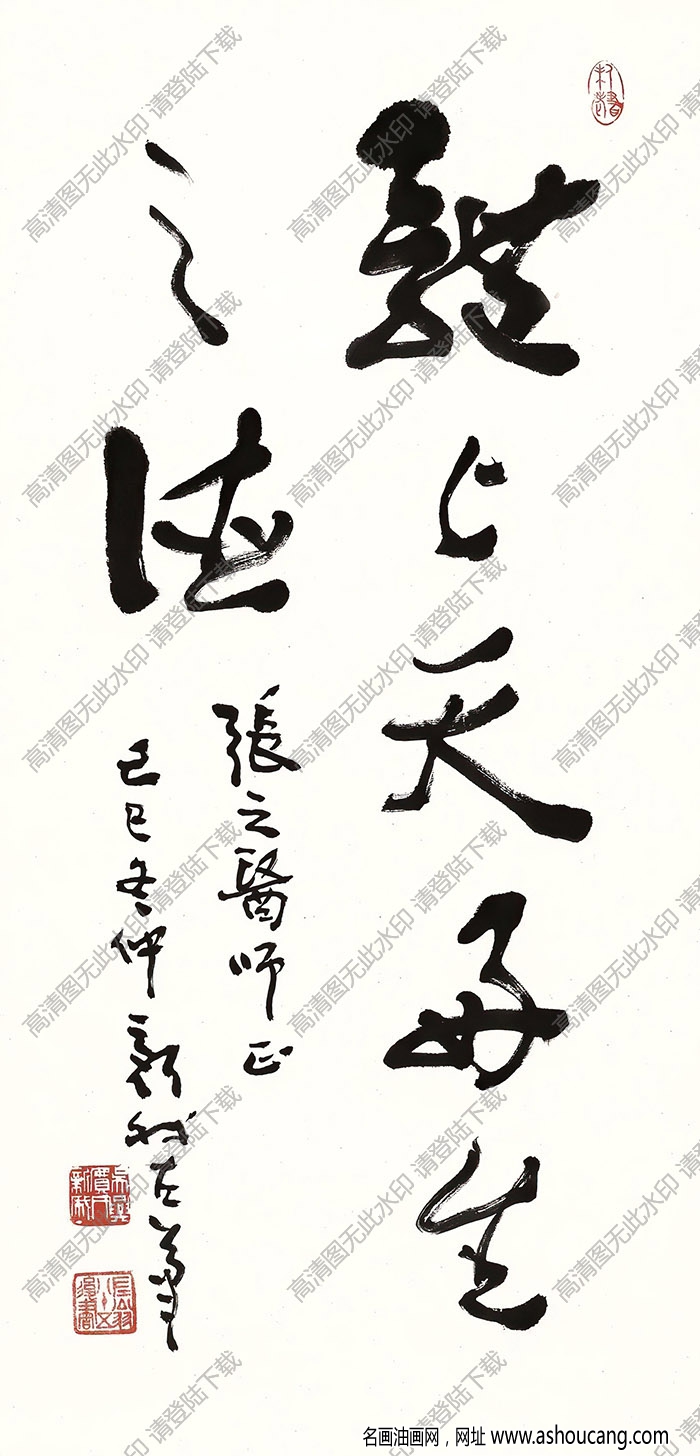 體上天好生
之德
張之醫師正
己巳冬仲新我左筆
高清图无此水印 请登陆下载
名画油画网，网址 www.ashoucang.com